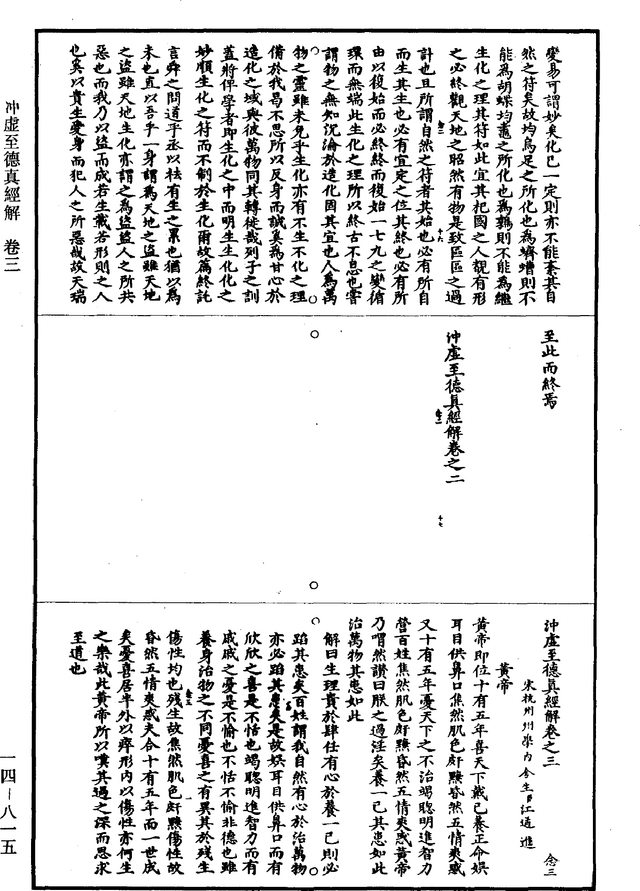 變易可謂妙矣化已一定則亦不能紊其自
然之符矣故均烏足之所化也為蠐螬則不
能為胡蝶均䵷之所化也為鶉則不能為繼
生化之理其符如此宜其杞國之人覩有形
之必終觀天地之昭然有物是致區區之過
計也且所謂自然之符者其始也必有所自
而生其生也必有宜定之位其終也必有所
由以復始而必終終而復始一七九之變循
環而無端此生化之理所以終古不息也嘗
謂物之無知沉淪於造化因其宜也人為萬
物之靈雖未免乎生化亦有不生不化之理
備於我曷不思所以反身而誠奚為甘心於
造化之域與彼萬物同其轉徙哉列子之訓
蓋將俾學者即生化之中而明生生化化之
妙順生化之符而不制於生化爾故篇終託
言舜之問道乎丞以袪有生之累也猶以為
未也直以吾乎一身謂為天地之盜雖天地
之盜雖天地生化亦謂之為盜盜人之所共
惡也而我乃以盜而成若生載若形則之人
也奚以貴生愛身而犯人之所惡哉故天瑞
至此而終焉
冲虛至德真經解卷之二
冲虛至德真經解卷之三
宋杭州州學內舍生臣江遹進
念三
黃帝
黃帝即位十有五年喜天下戴己養正命娛
耳目供鼻口焦然肌色皯黣昏然五情爽惑
又十有五年憂天下之不治竭聰明進智力
營百姓焦然肌色皯黣昏然五情爽惑黃帝
乃喟然讚曰朕之過淫矣養一己其患如此
治萬物其患如此
解曰生理貴於肆任有心於養一己則必
蹈其患矣百姓謂我自然有心於治萬物
亦必蹈其患矣是故娛耳目供鼻口而有
欣欣之喜是不恬也竭聰明進智力而有
戚戚之憂是不愉也不恬不愉非德也雖
養身治物之不同憂喜之有異其於殘生
傷性均也殘生故焦然肌色皯黣傷性故
昏然五情爽惑夫合十有五年而一世成
矣憂喜居半外以瘁形內以傷性亦何生
之樂哉此黃帝所以嘆其過之深而思求
至道也
冲虛至德真經解 卷三
一四－八一五